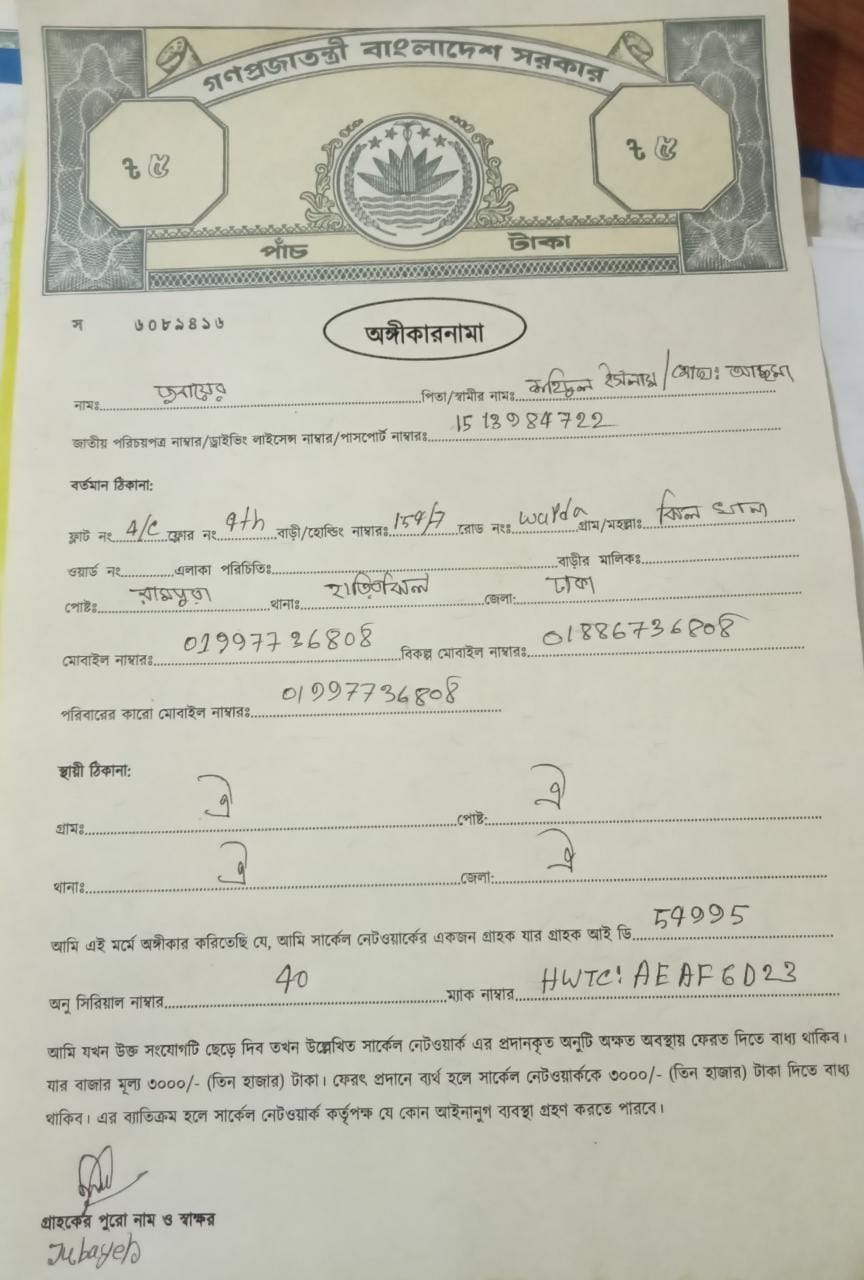 গণপ্রজাতন্ত্রী বাংলাদেশ সরকার
৳ ৫ ৳ ৫
পাঁচ টাকা
স ৬০৮৯৪১৬
অঙ্গীকারনামা
নামঃ জুবায়ের পিতা/স্বামীর নামঃ ইসলাম / মোছাঃ
জাতীয় পরিচয়পত্র নাম্বার/ড্রাইভিং লাইসেন্স নাম্বার/পাসপোর্ট নাম্বারঃ 1513984722
বর্তমান ঠিকানা:
ফ্লাট নং 4/C ফ্লোর নং 4th বাড়ী/হোল্ডিং নাম্বারঃ 154/7 রোড নংঃ Warda গ্রাম/মহল্লাঃ ঝিল
ওয়ার্ড নং এলাকা পরিচিতিঃ বাড়ীর মালিকঃ
পোষ্টঃ রামপুরা থানাঃ হাতিরঝিল জেলা: ঢাকা
মোবাইল নাম্বারঃ 01997736808 বিকল্প মোবাইল নাম্বারঃ 01886736808
পরিবারের কারো মোবাইল নাম্বারঃ 01997736808
স্থায়ী ঠিকানা:
গ্রামঃ ঐ পোষ্ট: ঐ
থানাঃ ঐ জেলা: ঐ
আমি এই মর্মে অঙ্গীকার করিতেছি যে, আমি সার্কেল নেটওয়ার্কের একজন গ্রাহক যার গ্রাহক আই ডি 54995
অনু সিরিয়াল নাম্বার 40 ম্যাক নাম্বার HWTC: AEAF6D23
আমি যখন উক্ত সংযোগটি ছেড়ে দিব তখন উল্লেখিত সার্কেল নেটওয়ার্ক এর প্রদানকৃত অনুটি অক্ষত অবস্থায় ফেরত দিতে বাধ্য থাকিব।
যার বাজার মূল্য ৩০০০/- (তিন হাজার) টাকা। ফেরৎ প্রদানে ব্যর্থ হলে সার্কেল নেটওয়ার্ককে ৩০০০/- (তিন হাজার) টাকা দিতে বাধ্য
থাকিব। এর ব্যতিক্রম হলে সার্কেল নেটওয়ার্ক কর্তৃপক্ষ যে কোন আইনানুগ ব্যবস্থা গ্রহণ করতে পারবে।
গ্রাহকের পুরো নাম ও স্বাক্ষর
Jubayeb